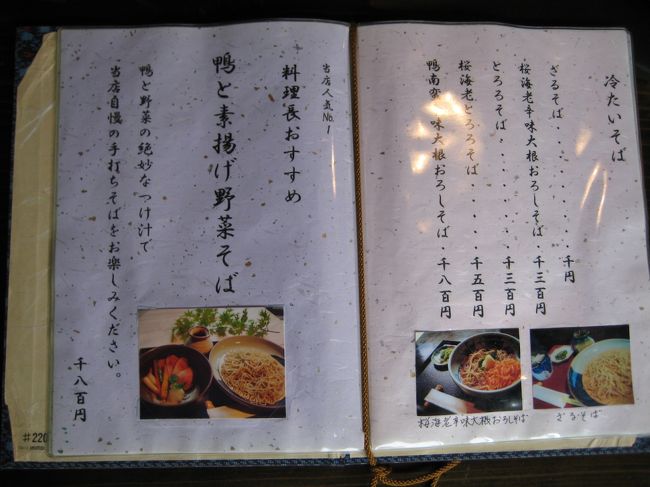 冷たいそば
ざるそば・・・・・・・・千円
桜海老辛味大根おろしそば・千三百円
とろろそば・・・・・・・千三百円
桜海老とろろそば・・・・千五百円
鴨南蛮辛味大根おろしそば・千八百円
ざるそば
桜海老辛味大根おろしそば
当店人気No.1
料理長おすすめ
鴨と素揚げ野菜そば
鴨と野菜の絶妙なつけ汁で
当店自慢の手打ちそばをお楽しみください。
千八百円
#220